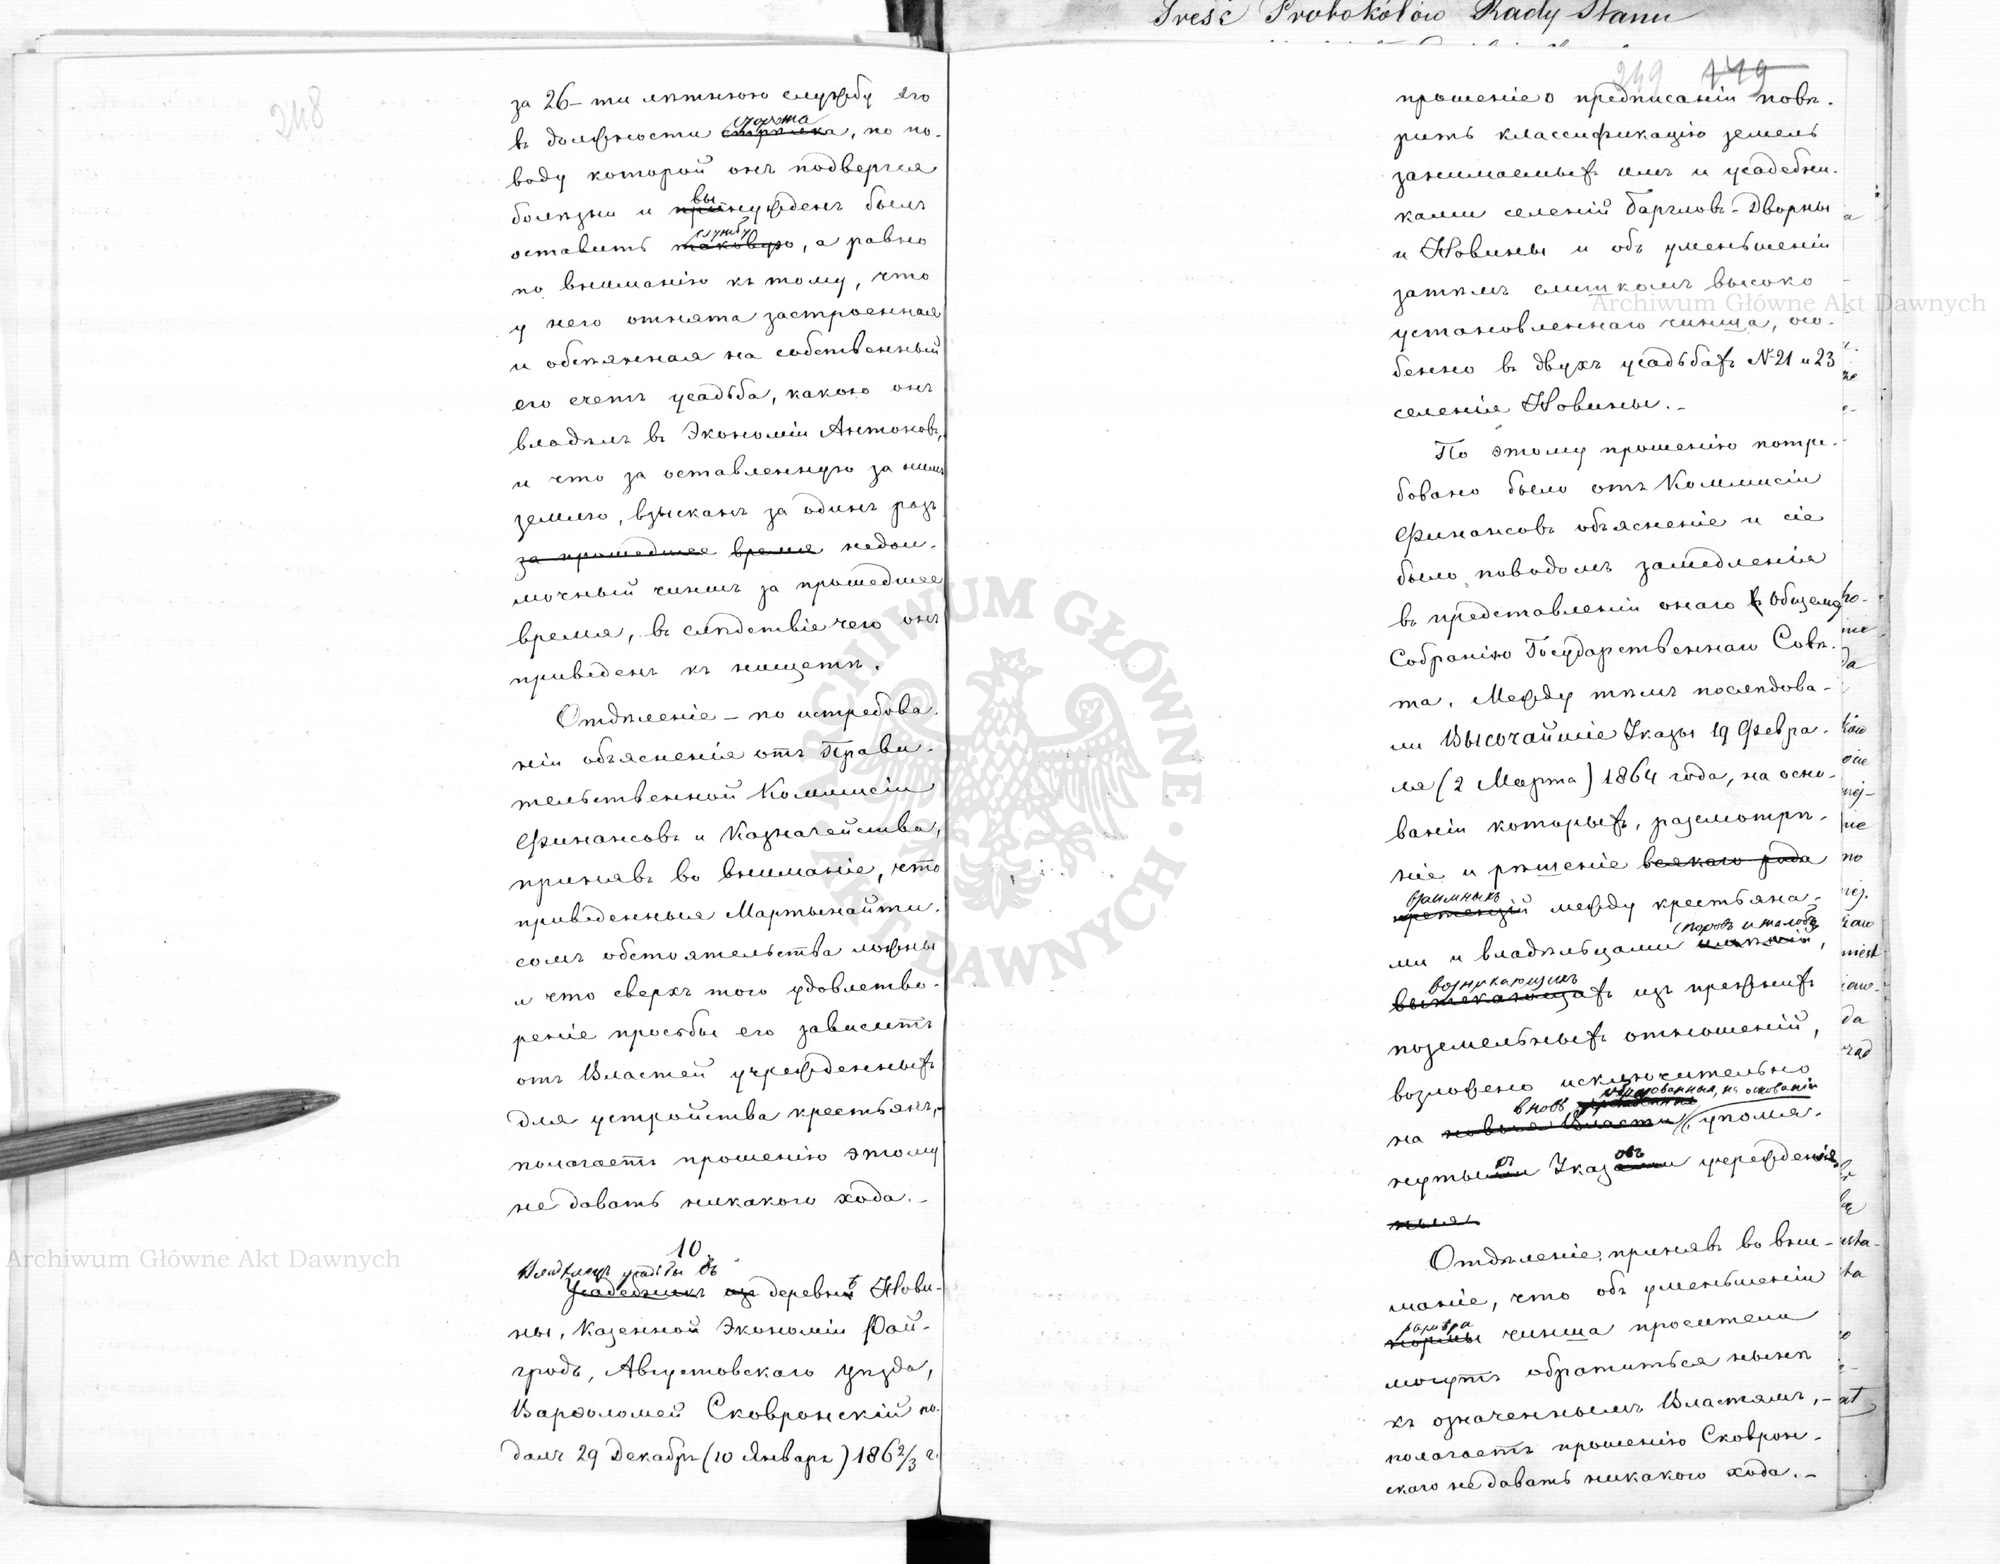 Treść Protokołów Rady Stanu
248
за 26-ти лѣтнюю службу его
сторожа
въ должности стрѣлка, по по-
воду которой онъ подвергся
вы
болѣзни и принужденъ былъ
службу
оставить таковую, а равно
по вниманію къ тому, что
у него отнята застроенная
и обсѣянная на собственный
его счетъ усадьба, какою онъ
владѣлъ въ Экономіи Антоновъ,
и что за оставленную за нимъ
землю, взысканъ за одинъ разъ
за прошедшее время недои-
мочный чиншъ за прошедшее
время, въ слѣдствіе чего онъ
приведенъ къ нищетѣ.
Отдѣленіе – по истребова-
ніи объясненія отъ Прави-
тельственной Коммисіи
Финансовъ и Казначейства,
принявъ во вниманіе, что
приведенныя Мартынайти-
сомъ обстоятельства ложны
и что сверхъ того удовлетво-
реніе просьбы его зависитъ
отъ Властей учрежденныхъ
для устройства крестьянъ,-
полагаетъ прошенію этому
не давать никакого хода.-
10.
Владѣлецъ усадьбы въ
Усадебникъ изъ деревнѣ Нови-
ны, Казенной Экономіи Рай-
гродъ, Августовскаго уѣзда,
Варѳоломей Сковронскій по-
далъ 29 Декабря (10 Января) 186 2/3 г.
249 149
прошеніе о предписаніи повѣ-
рить классификацію земель
занимаемыхъ имъ и усадебни-
ками селеній Барглов-Дворны
и Новины и объ уменьшеніи
затѣмъ слишкомъ высоко
установленнаго чинша, осо-
бенно въ двухъ усадьбахъ №21 и 23
селенія Новины.-
По этому прошенію потре-
бовано было отъ Коммисіи
Финансовъ объясненіе и сіе
было поводомъ замедленія
въ представленіи онаго в Общему
Собранію Государственнаго Совѣ-
та. Между тѣмъ послѣдова-
ли Высочайшіе Указы 19 Февра-
ля (2 Марта) 1864 года, на осно-
ваніи которыхъ, разсмотрѣ-
ніе и рѣшеніе всякаго рода
взаимныхъ
претензій между крестьяна-
споровъ и жалобъ
ми и владѣльцами
возникающихъ
вытекающихъ изъ прежнихъ
поземельныхъ отношеній,
возложено исключительно
образованныя, на основаніи
вновь учрежденныя
на новыя Власти, упомя-
хъ овъ
нутыми Указами учрежденія
ныя.
Отдѣленіе, принявъ во вни-
маніе, что объ уменьшеніи
размѣра
нормы чинша просители
могутъ обратиться нынѣ
къ означеннымъ Властямъ,-
полагаетъ прошенію Сковрон-
скаго не давать никакого хода.-
Archiwum Główne Akt Dawnych
Archiwum Główne Akt Dawnych
ARCHIWUM GŁÓWNE AKT DAWNYCH